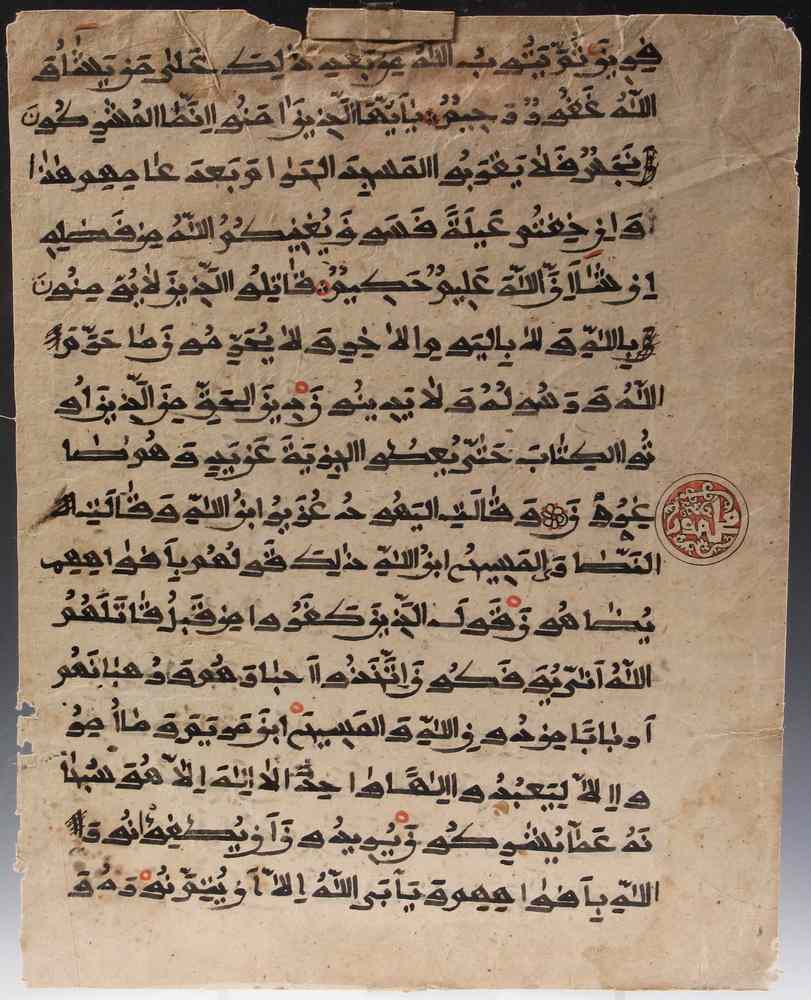 فِرِينَ ثُمَّ يَتُوبُ اللَّهُ مِنْ بَعْدِ ذَٰلِكَ عَلَىٰ مَنْ يَشَاءُ وَ
اللَّهُ غَفُورٌ رَحِيمٌ يَا أَيُّهَا الَّذِينَ آمَنُوا إِنَّمَا الْمُشْرِكُونَ
نَجَسٌ فَلَا يَقْرَبُوا الْمَسْجِدَ الْحَرَامَ بَعْدَ عَامِهِمْ هَٰذَا
وَإِنْ خِفْتُمْ عَيْلَةً فَسَوْفَ يُغْنِيكُمُ اللَّهُ مِنْ فَضْلِهِ
إِنْ شَاءَ إِنَّ اللَّهَ عَلِيمٌ حَكِيمٌ قَاتِلُوا الَّذِينَ لَا يُؤْمِنُونَ
بِاللَّهِ وَلَا بِالْيَوْمِ الْآخِرِ وَلَا يُحَرِّمُونَ مَا حَرَّمَ
اللَّهُ وَرَسُولُهُ وَلَا يَدِينُونَ دِينَ الْحَقِّ مِنَ الَّذِينَ أُو
تُوا الْكِتَابَ حَتَّىٰ يُعْطُوا الْجِزْيَةَ عَنْ يَدٍ وَهُمْ صَا
غِرُونَ وَقَالَتِ الْيَهُودُ عُزَيْرُ ابْنُ اللَّهِ وَقَالَتِ
النَّصَارَى الْمَسِيحُ ابْنُ اللَّهِ ذَٰلِكَ قَوْلُهُمْ بِأَفْوَاهِهِمْ
يُضَاهِؤُنَ قَوْلَ الَّذِينَ كَفَرُوا مِنْ قَبْلُ قَاتَلَهُمُ
اللَّهُ أَنَّىٰ يُؤْفَكُونَ اتَّخَذُوا أَحْبَارَهُمْ وَرُهْبَانَهُمْ
أَرْبَابًا مِنْ دُونِ اللَّهِ وَالْمَسِيحَ ابْنَ مَرْيَمَ وَمَا أُمِرُ
وا إِلَّا لِيَعْبُدُوا إِلَٰهًا وَاحِدًا لَا إِلَٰهَ إِلَّا هُوَ سُبْحَا
نَهُ عَمَّا يُشْرِكُونَ يُرِيدُونَ أَنْ يُطْفِئُوا نُورَ
اللَّهِ بِأَفْوَاهِهِمْ وَيَأْبَى اللَّهُ إِلَّا أَنْ يُتِمَّ نُورَهُ وَ